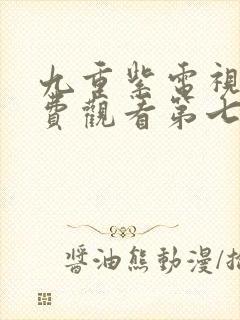 九重紫電視
費觀看第七
醬油熊動漫/